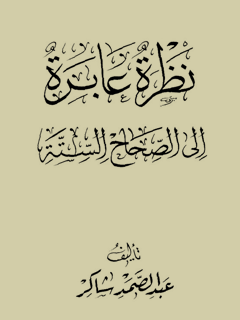 نَظْرَةٌ عَابِرَةٌ
إِلَى الصِّحَاحِ السِّتَّةِ
تأليفُ
عَبدالصَّمَد شاكِر